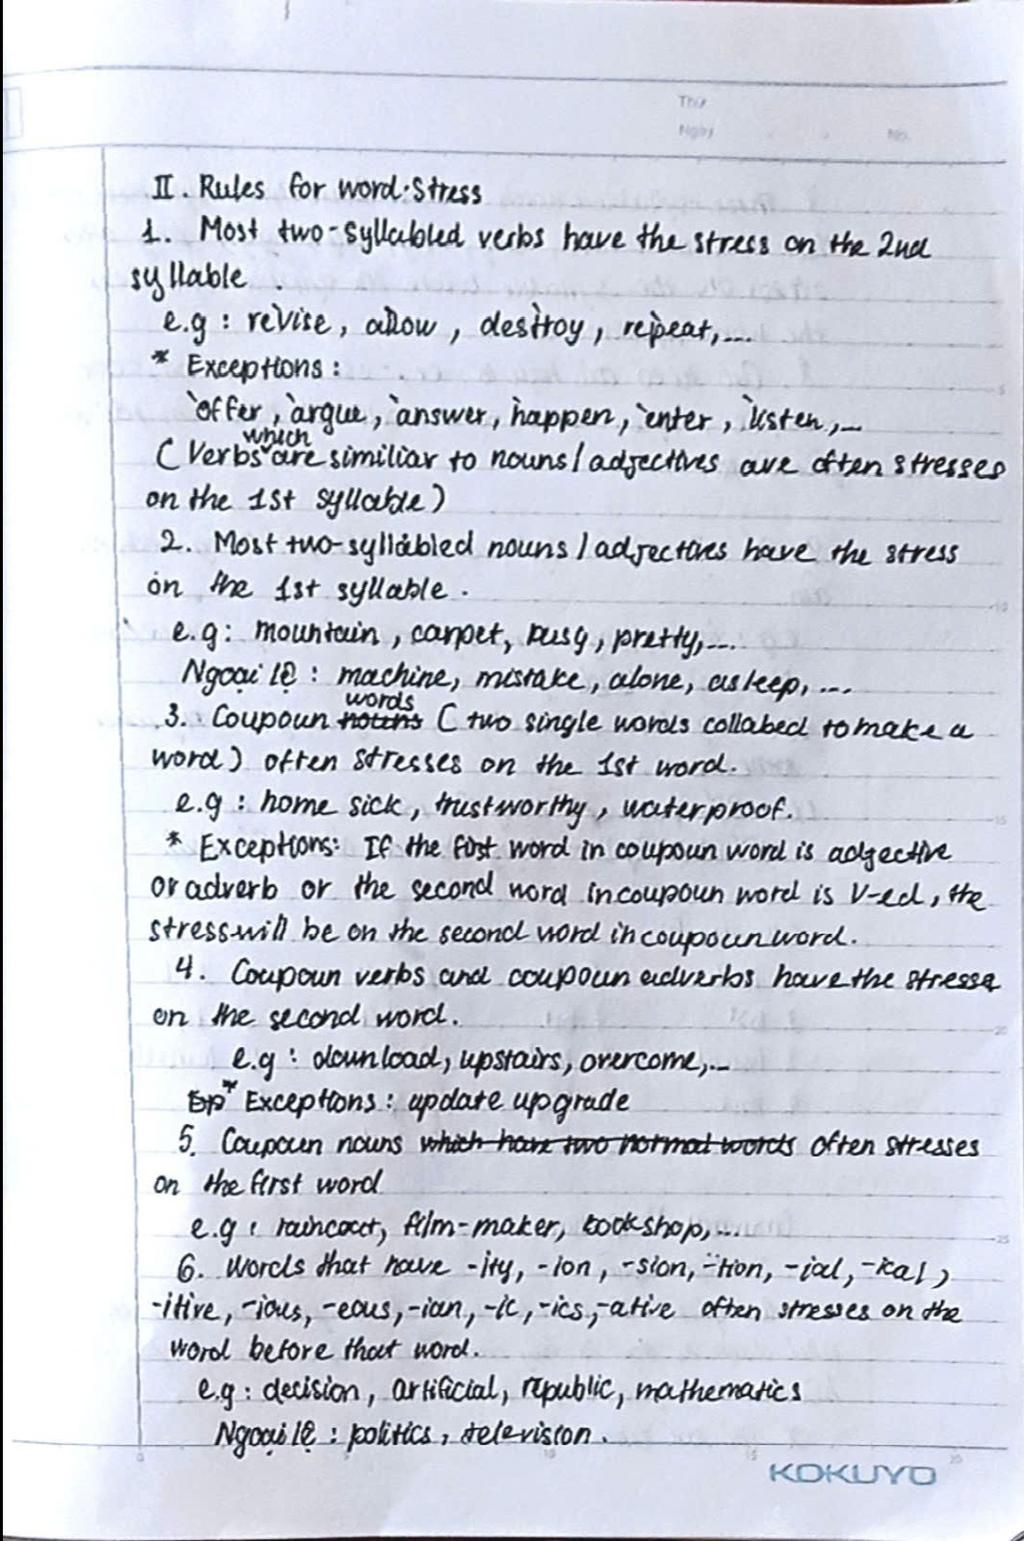 Thứ
Ngày
No.
II. Rules for word: Stress
1. Most two-syllabled verbs have the stress on the 2nd
syllable.
e.g: re'vise, allow, des'troy, re'peat,...
* Exceptions:
'offer, 'argue, 'answer, 'happen, 'enter, 'listen,...
which
(Verbs are similiar to nouns / adjectives are often stresses
on the 1st syllable)
2. Most two-syllabled nouns / adjectives have the stress
on the 1st syllable.
e.g: mountain, carpet, busy, pretty,...
Ngoại lệ: machine, mistake, alone, asleep,...
words
3. Coupoun nouns (two single words collabed to make a
word) often stresses on the 1st word.
e.g: home sick, trustworthy, waterproof.
* Exceptions: If the first word in coupoun word is adjective
or adverb or the second word in coupoun word is V-ed, the
stress will be on the second word in coupoun word.
4. Coupoun verbs and coupoun adverbs have the stress
on the second word.
e.g: download, upstairs, overcome,...
* Exceptions: update upgrade
5. Coupoun nouns which have two normal words often stresses
on the first word
e.g: raincoat, film-maker, bookshop,...
6. Words that have -ity, -ion, -sion, -tion, -ial, -ical,
-itive, -ious, -eous, -ian, -ic, -ics, -ative often stresses on the
word before that word.
e.g: decision, artificial, republic, mathematics
Ngoại lệ: politics, television.
KOKUYO